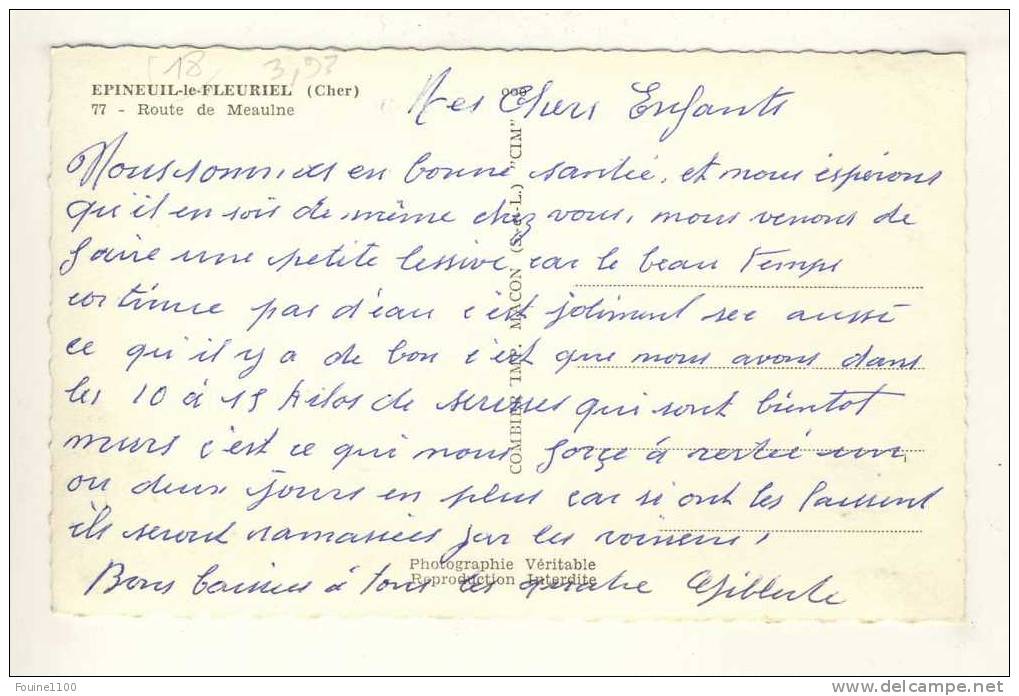 (18) 3,93
EPINEUIL-le-FLEURIEL (Cher)
77 - Route de Meaulne
Mes Chers Enfants
Nous sommes en bonne santée, et nous espérons
qu'il en soit de même chez vous, nous venons de
faire une petite lessive car le beau Temps
continue pas d'eau c'est joliment sec aussi
ce qu'il y a de bon c'est que nous avons dans
les 10 à 15 kilos de serises qui sont bientot
murs c'est ce qui nous force à restée un
ou deux jours en plus car si ont les laissent
ils seront ramassées par les voisins,
Bons baisers à tous les quatre Gilberte
COMBIER IMP. MACON (S.-et-L.) "CIM"
Photographie Véritable
Reproduction Interdite
Foune1100
delcampe.net